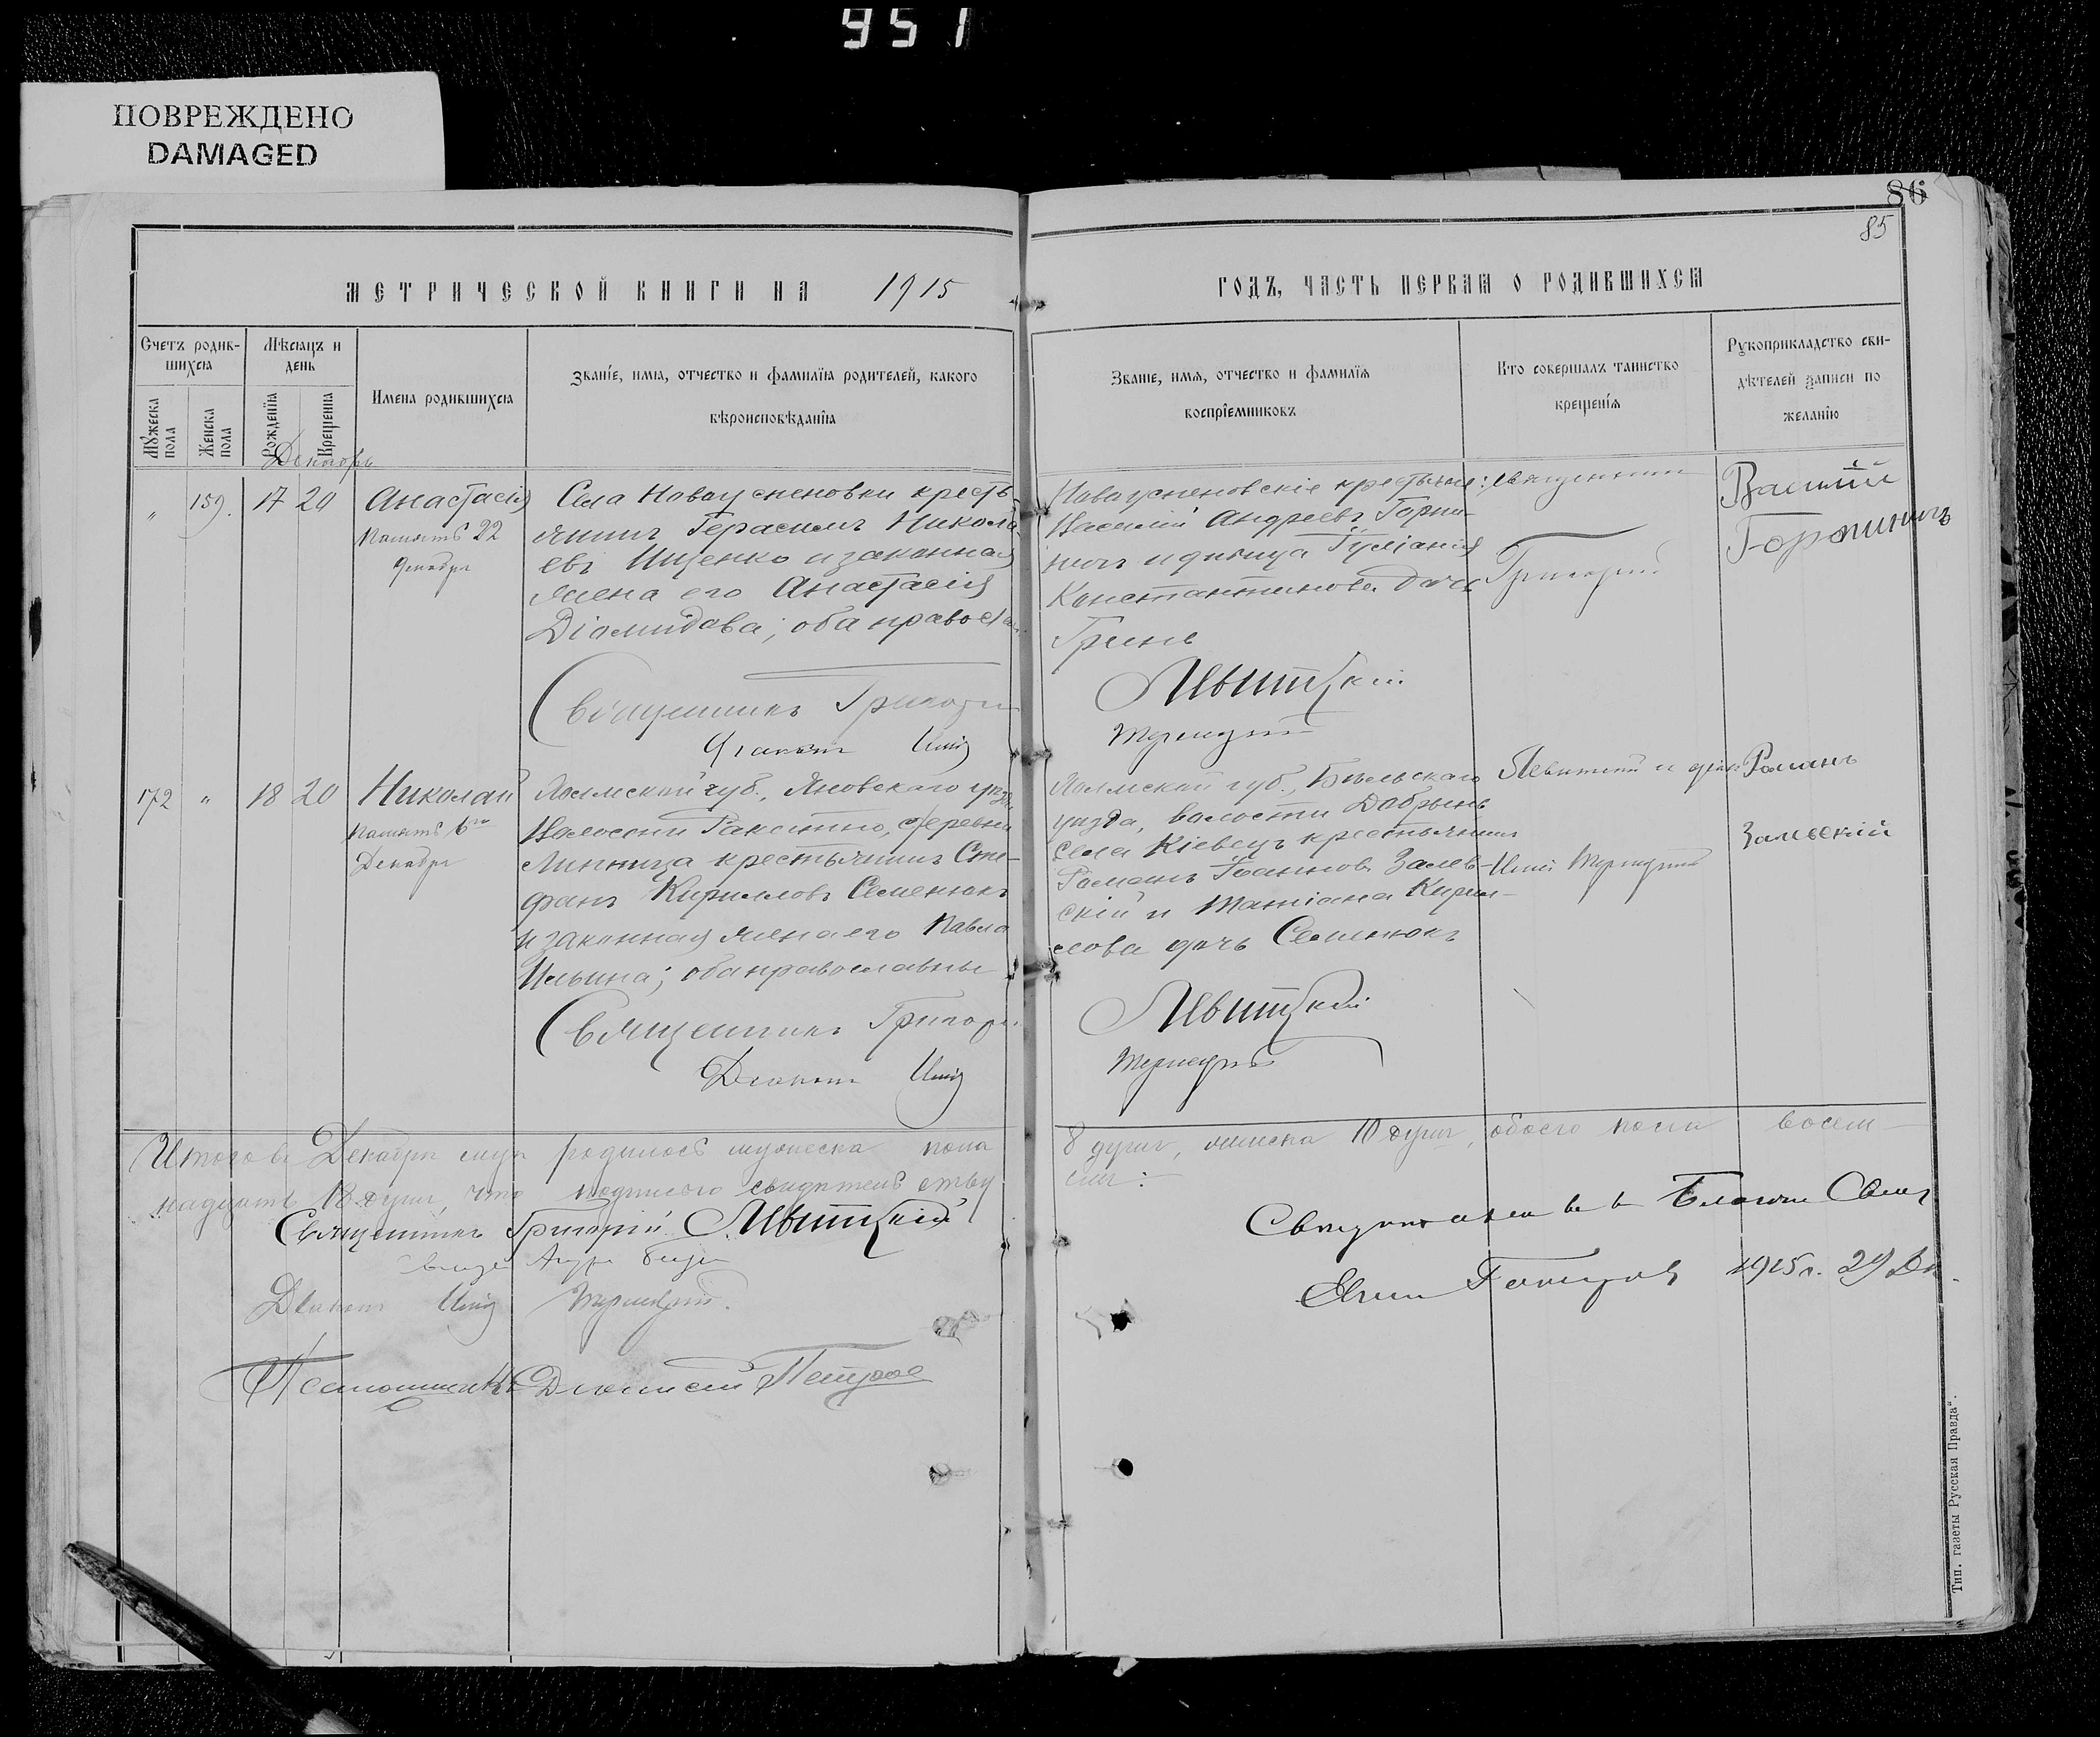 951
ПОВРЕЖДЕНО
DAMAGED
86
85
МЕТРИЧЕСКОЙ КНИГИ НА 1915
ГОДЪ, ЧАСТЬ ПЕРВАЯ О РОДИВШИХСЯ
Счетъ родив-
шихся
Мужеска пола
Женска пола
Мѣсяцъ и
день
Рожденія
Крещенія
Имена родившихся
Званіе, имя, отчество и фамилія родителей, какого
вѣроисповѣданія
Званіе, имя, отчество и фамилія
воспріемниковъ
Кто совершалъ таинство
крещенія
Рукоприкладство сви-
дѣтелей записи по
желанію
Декабрь
" 159. 17 20
Анастасія
Память 22
Декабря
Села Новоуспеновки кресть-
янинъ Герасимъ Никола-
евъ Ищенко и законная
жена его Анастасія
Діомидова; оба православ
Священникъ Григорій
Діаконъ
Новоуспеновскіе крестьяне:
Василій Андреевъ Горпи-
ничъ и дѣвица Іуліанія
Константинова дочь
Гринь
Левитскій
Священникъ
Григорій
Василій
Горпиничъ
172 " 18 20
Николай
Память 6го
Декабря
Холмской губ., Яновскаго уѣзда
Волости Ракитно, деревни
Липница крестьянинъ Сте-
фанъ Кирилловъ Семенюкъ
и законная жена его Павла
Ильина; оба православны
Священникъ Григорій
Діаконъ
Холмской губ., Бѣльскаго
уѣзда, волости Добрынь
села Кіевецъ крестьянинъ
Романъ Іоанновъ Залев-
скій и Татіана Кирил-
лова дочь Семенюкъ
Левитскій
Левитскій и діак.
Романъ
Залевскій
Итого въ Декабрѣ мѣс. родилось мужеска пола
8 душъ, женска 10 душъ, обоего пола восем-
надцать 18 душъ, что подписью свидѣтельствуемъ
Священникъ Григорій Левитскій
Діаконъ
Псаломщикъ Діонисій Петров
1915 г. 29 Дек.
Тип. газеты Русская Правда“.